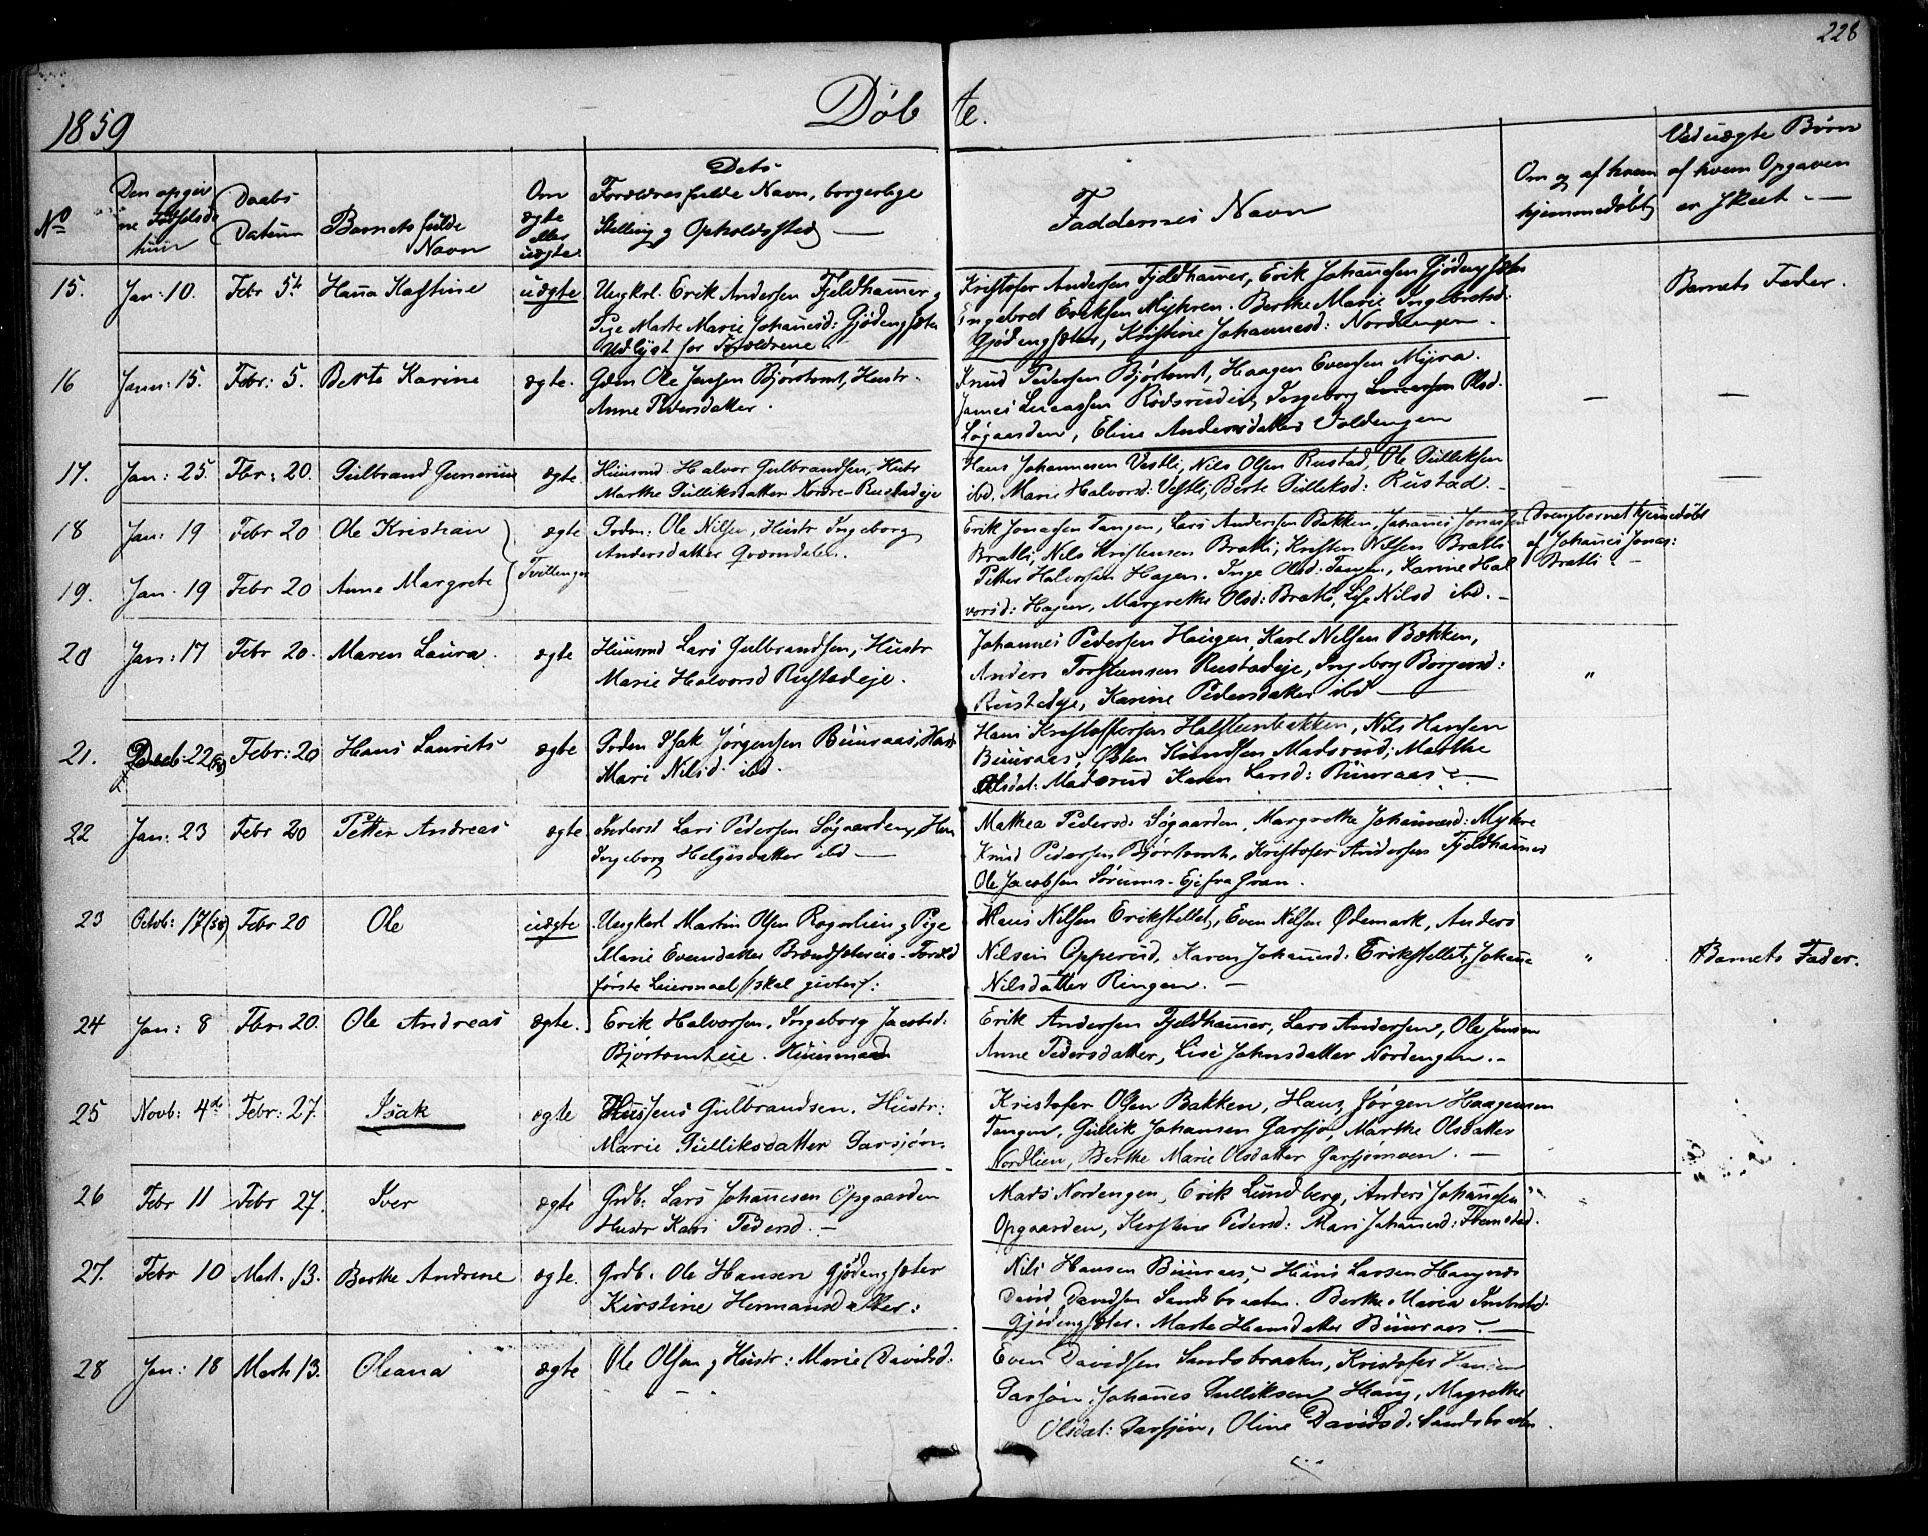 228
1859
Døbte.
No
Den opgivne Fødselsdatum
Daabs Datum
Barnets fulde Navn
Om ægte eller uægte.
Dets Forældres fulde Navn, borgerlige Stilling og Opholdssted
Faddernes Navn
Om og af hvem hjemmedøbt
Ved uægte Børn af hvem Opgaven er skeet.
15. Jan: 10. Febr 5te Hana Kastine uægte Ungkrl. Erik Andersen Fjeldhamer og
Pige Marte Marie Johanesd: Gjødengsæter
Udlyst for Forældrene
Kristofer Andersen Fjeldhamer, Erik Johannesen Gjødengsæter
Engebret Eriksen Mykren. Berthe Marie Ingebretsd:
Gjødengsæter, Kristine Johannesd: Nordengen.
Barnets Fader.
16 Jann: 15. Febr: 5. Berte Karine ægte. Gdm Ole Jensen Bjørtomt, Hustr.
Anne Pedersdatter.
Knud Pedersen Bjørtomt, Haagen Evensen Myra.
James Lucassen Rødsrudeie, Ingeborg Olsd.
Søgaarden, Eline Andersdatter Voldengen
— —
17. Jan: 25. Fbr: 20. Gulbrand Gunerius ægte Huusmd. Halvor Gulbrandsen, Hustr
Marthe Gulliksdatter Nordre-Rustadeje
Hans Johannesen Vestli, Nils Olsen Rustad, Ole Gulliksen
ibd. Marie Halvorsd: Vestli, Berte Gulliksd: Rustad.
—
18 Jan: 19 Febr 20 Ole Kristian ægte Gdm: Ole Nilsen, Hustr Ingeborg
Andersdatter Grøndalen.
19. Jan. 19 Febr 20 Anne Margrete Tvillinger
Erik Jonassen Tangen, Lars Andersen Bakken, Johannes Jonassen
Bratli, Nils Kristensen Bratli, Kristen Nilsen Bratli
Petter Halvorsen Hagen. Inge Olsd: Tangen, Karine Hal
vorsd: Hagen, Margrethe Olsd: Bratli, Lise Nilsd ibd.
Drengbarnet hjemedøbt
af Johanes Jonas:
Bratli.
20 Jan: 17 Febr 20. Maren Laura. ægte Huusmd Lars Gulbrandsen, Hustr
Marie Halvorsd Rustadeje.
Johannes Pedersen Haugen, Karl Nilsen Bækken,
Anders Torstensen Rustadeje, Ingeborg Børgersd:
Rustadeje, Karine Pedersdatter ibd
"
21. Decb: 22 (58) Febr: 20 Hans Laurits ægte Gdm Isak Jørgensen Buuraas, Hust
Mari Nilsd. ibd.
Hans Kristoffersen Halsteenbakken, Nils Hansen
Buuraas, Østen Knudsen Madsrud; Marthe
Olsdat: Madsrud Karen Larsd: Buuraas
22 Jan: 23 Febr 20 Petter Andreas ægte Inderst Lars Pedersen Søgaarden, Hu
Ingeborg Helgesdatter ibd
Mathea Pedersd. Søgaarden, Margrethe Johannesd: Mykre
Knud Pedersen Bjørtomt, Kristofer Andersen Fjeldhamer
Ole Jacobsen Sørums-Eje fra Gran.
23 Octob: 17 (58) Febr 20 Ole uægte Ungkrl Martin Olsen Rognlien og Pige
Marie Evensdatter Brændsæterei. Foræld
første Leiermaal (skal giftes):
Hans Nilsen Erikstellet, Even Nilsen Ødemark, Anders
Nilsen Opperud. Karen Johannesd. Erikstellet, Johane
Nilsdatter Ringen.
"
Barnets Fader.
24 Jan: 8 Fbr 20. Ole Andreas ægte. Erik Halvorsen, Ingeborg Jacobsd:
Bjørtomteie. Huusmand
Erik Andersen Fjeldhamer, Lars Andersen, Ole Jensen
Anne Pedersdatter, Lise Johnsdatter Nordengen.
25 Novb: 4de Febr: 27. Isak ægte Jens Gulbrandsen. Hustr:
Marie Gulliksdatter Garsjøn.
Kristofer Olsen Bakken, Hans Jørgen Haagensen
Tangen, Gullik Johansen Garsjø, Marthe Olsdatter
Nordlien, Berthe Marie Olsdatter Garsjømoen.
26 Febr 11 Febr 27. Iver ægte Grdb: Lars Johanesen Opgaarden
Hustr Kari Pedersd.
Mads Nordengen, Erik Lundberg, Anders Johanesen
Opgaarden, Kirstine Pedersd: Mari Johanesd:
27. Febr 10 Mart. 13. Berthe Andrene ægte. Grdb. Ole Hansen Gjødengsæter
Kirstine Hermansdatter:
Nils Hansen Buuraas, Hans Larsen
David Davidsen Sandsbraaten. Berthe Maria
Gjødengsæter. Marte Hansdatter Buuraas.
28 Jan: 18 Mart 13. Oleana ægte Ole Olsen og Hustr: Marie Davidsd:
Even Davidsen Sandsbraaten, Kristofer Hansen
Garsjøn, Johanes Gulliksen Haug, Magrethe
Olsdat: Garsjøn, Oline Davidsd. Sandsbraaten.